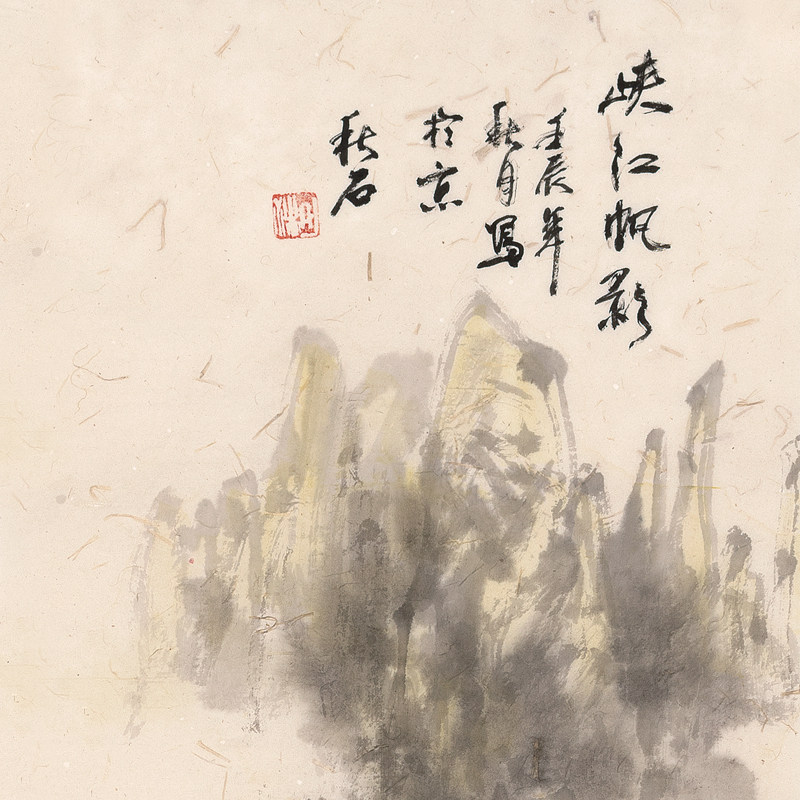 峡江帆影
壬辰年
秋月写
于京
秋石